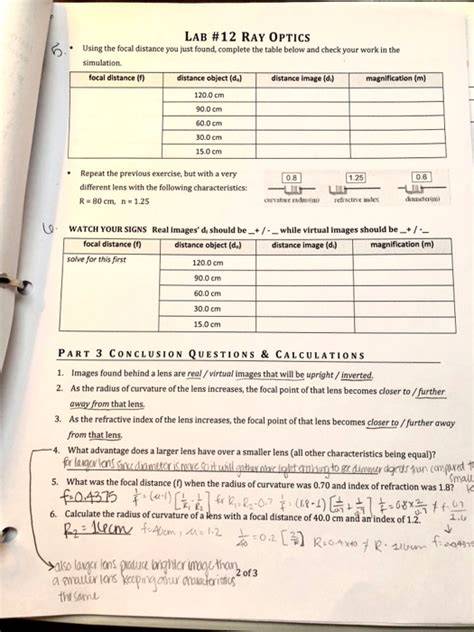 LAB #12 RAY OPTICS
5.
• Using the focal distance you just found, complete the table below and check your work in the
simulation.
focal distance (f) distance object (dₒ) distance image (dᵢ) magnification (m)
120.0 cm
90.0 cm
60.0 cm
30.0 cm
15.0 cm
• Repeat the previous exercise, but with a very
different lens with the following characteristics:
R = 80 cm, n = 1.25
0.8 1.25 0.6
curvature radius(m) refractive index diameter(m)
6.
WATCH YOUR SIGNS Real images' dᵢ should be _+ / -_ while virtual images should be _+ / -_
focal distance (f) distance object (dₒ) distance image (dᵢ) magnification (m)
solve for this first 120.0 cm
90.0 cm
60.0 cm
30.0 cm
15.0 cm
PART 3 CONCLUSION QUESTIONS & CALCULATIONS
1. Images found behind a lens are real / virtual images that will be upright / inverted.
2. As the radius of curvature of the lens increases, the focal point of that lens becomes closer to / further
away from that lens.
3. As the refractive index of the lens increases, the focal point of that lens becomes closer to / further away
from that lens.
4. What advantage does a larger lens have over a smaller lens (all other characteristics being equal)?
for larger lens since diameter is more so it will gather more light enabling to see dimmer objects than compared to
small
5. What was the focal distance (f) when the radius of curvature was 0.70 and index of refraction was 1.8?
f=0.4375
6. Calculate the radius of curvature of a lens with a focal distance of 40.0 cm and an index of 1.2.
R₂ = 16cm f=40cm, μ=1.2 1/40 =0.2 [2/R]
also larger lens produce brighter image than
a smaller lens keeping other characteristics
the same
2 of 3